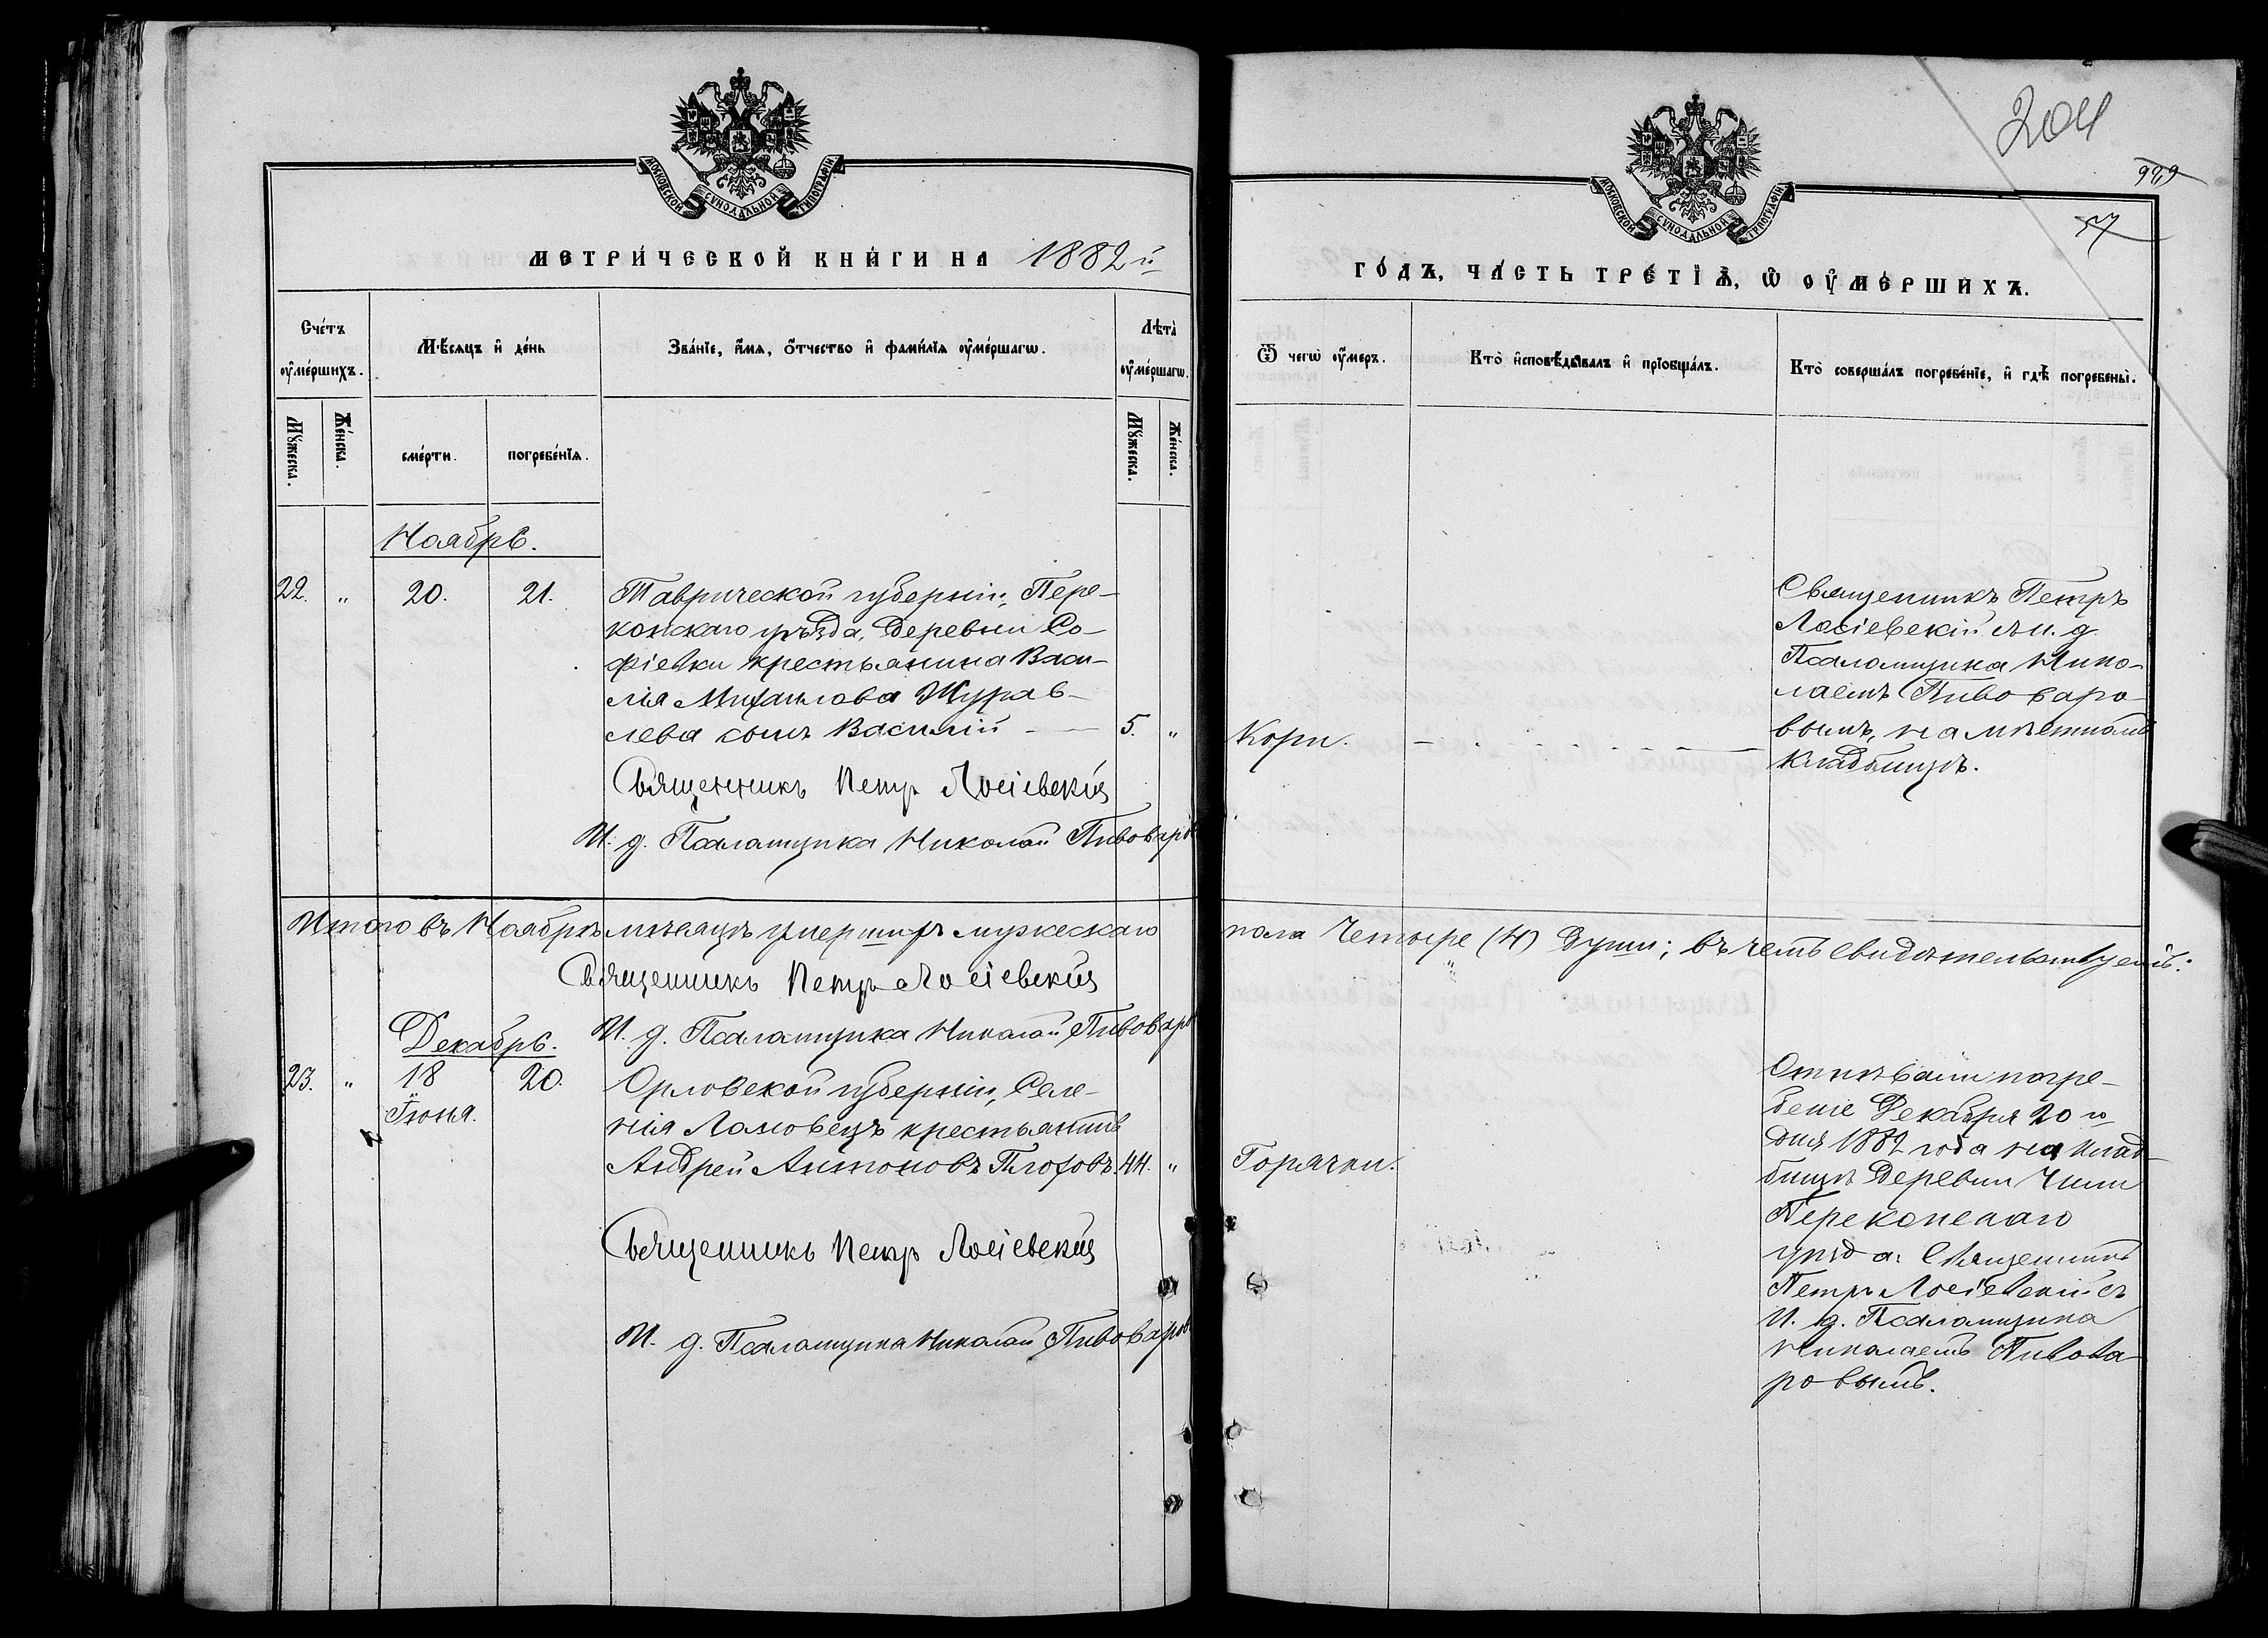 МОСКОВСКОЙ СѴНОДАЛЬНОЙ ТИПОГРАФІИ
МЕТРИ́ЧЕСКОЙ КНИ́ГИ НА 1882й
Сче́тъ ᲂу҆ме́ршихъ.
Мѣ́сяцъ и҆ де́нь
Зва́нїе, и҆́мя, ѻ҆́тчество и҆ фами́лїя ᲂу҆ме́ршагѡ.
Лѣта̀ ᲂу҆ме́ршагѡ.
Мꙋ́жеска.
Же́нска.
сме́рти.
погребе́нїѧ.
Мꙋ́жеска.
Же́нска.
Ноябрь.
22. " 20. 21. Таврической губерніи, Пере-
копскаго уѣзда, Деревни Со-
фіевки крестьянина Васи-
лія Михаилова Журав-
лева сынъ Василій - — 5. "
Священникъ Петр Лосіевскій
И. д. Псаломщика Николай Пивоваров
Итого въ Ноябрѣ мѣсяцѣ умершихъ мужескаго
Священникъ Петръ Лосіевскій
И. д. Псаломщика Николай Пивоваров
Декабрь.
23. " 18 20. Орловской губерніи, Селе-
Іюня.
нія Ломовецъ крестьянинъ
Андрей Антоновъ Плоховъ. 44. "
Священникъ Петр Лосіевскій
И. д. Псаломщика Николай Пивоваров
204
929
57
МОСКОВСКОЙ СѴНОДАЛЬНОЙ ТИПОГРАФІИ
ГО́ДЪ, ЧА́СТЬ ТРЕ́ТЇѦ, Ѡ҆ ОУ҆МЕ́РШИХЪ.
Ѿ чегѡ̀ ᲂу҆́меръ.
Кто̀ и҆сповѣ́дывалъ и҆ прїобща́лъ.
Кто̀ соверша́лъ погребе́нїе, и҆ гдѣ̀ погребены̀.
Священникъ Петръ
Лосіевскій и. д.
Псаломщика Нико-
лаемъ Пивоваро-
вымъ, на мѣстномъ
кладбищѣ.
Кори.
пола Четыре (4) души; въ чемъ свидѣтельствуемъ:
Отпѣваніи погре-
беніе Декабря 20 го
дня 1882 года на клад-
бищѣ Деревни
Перекопскаго
уѣзда: Священникъ
Петръ Лосіевскій съ
И. д. Псаломщика
Николаемъ Пивова-
ровымъ.
Горячки.